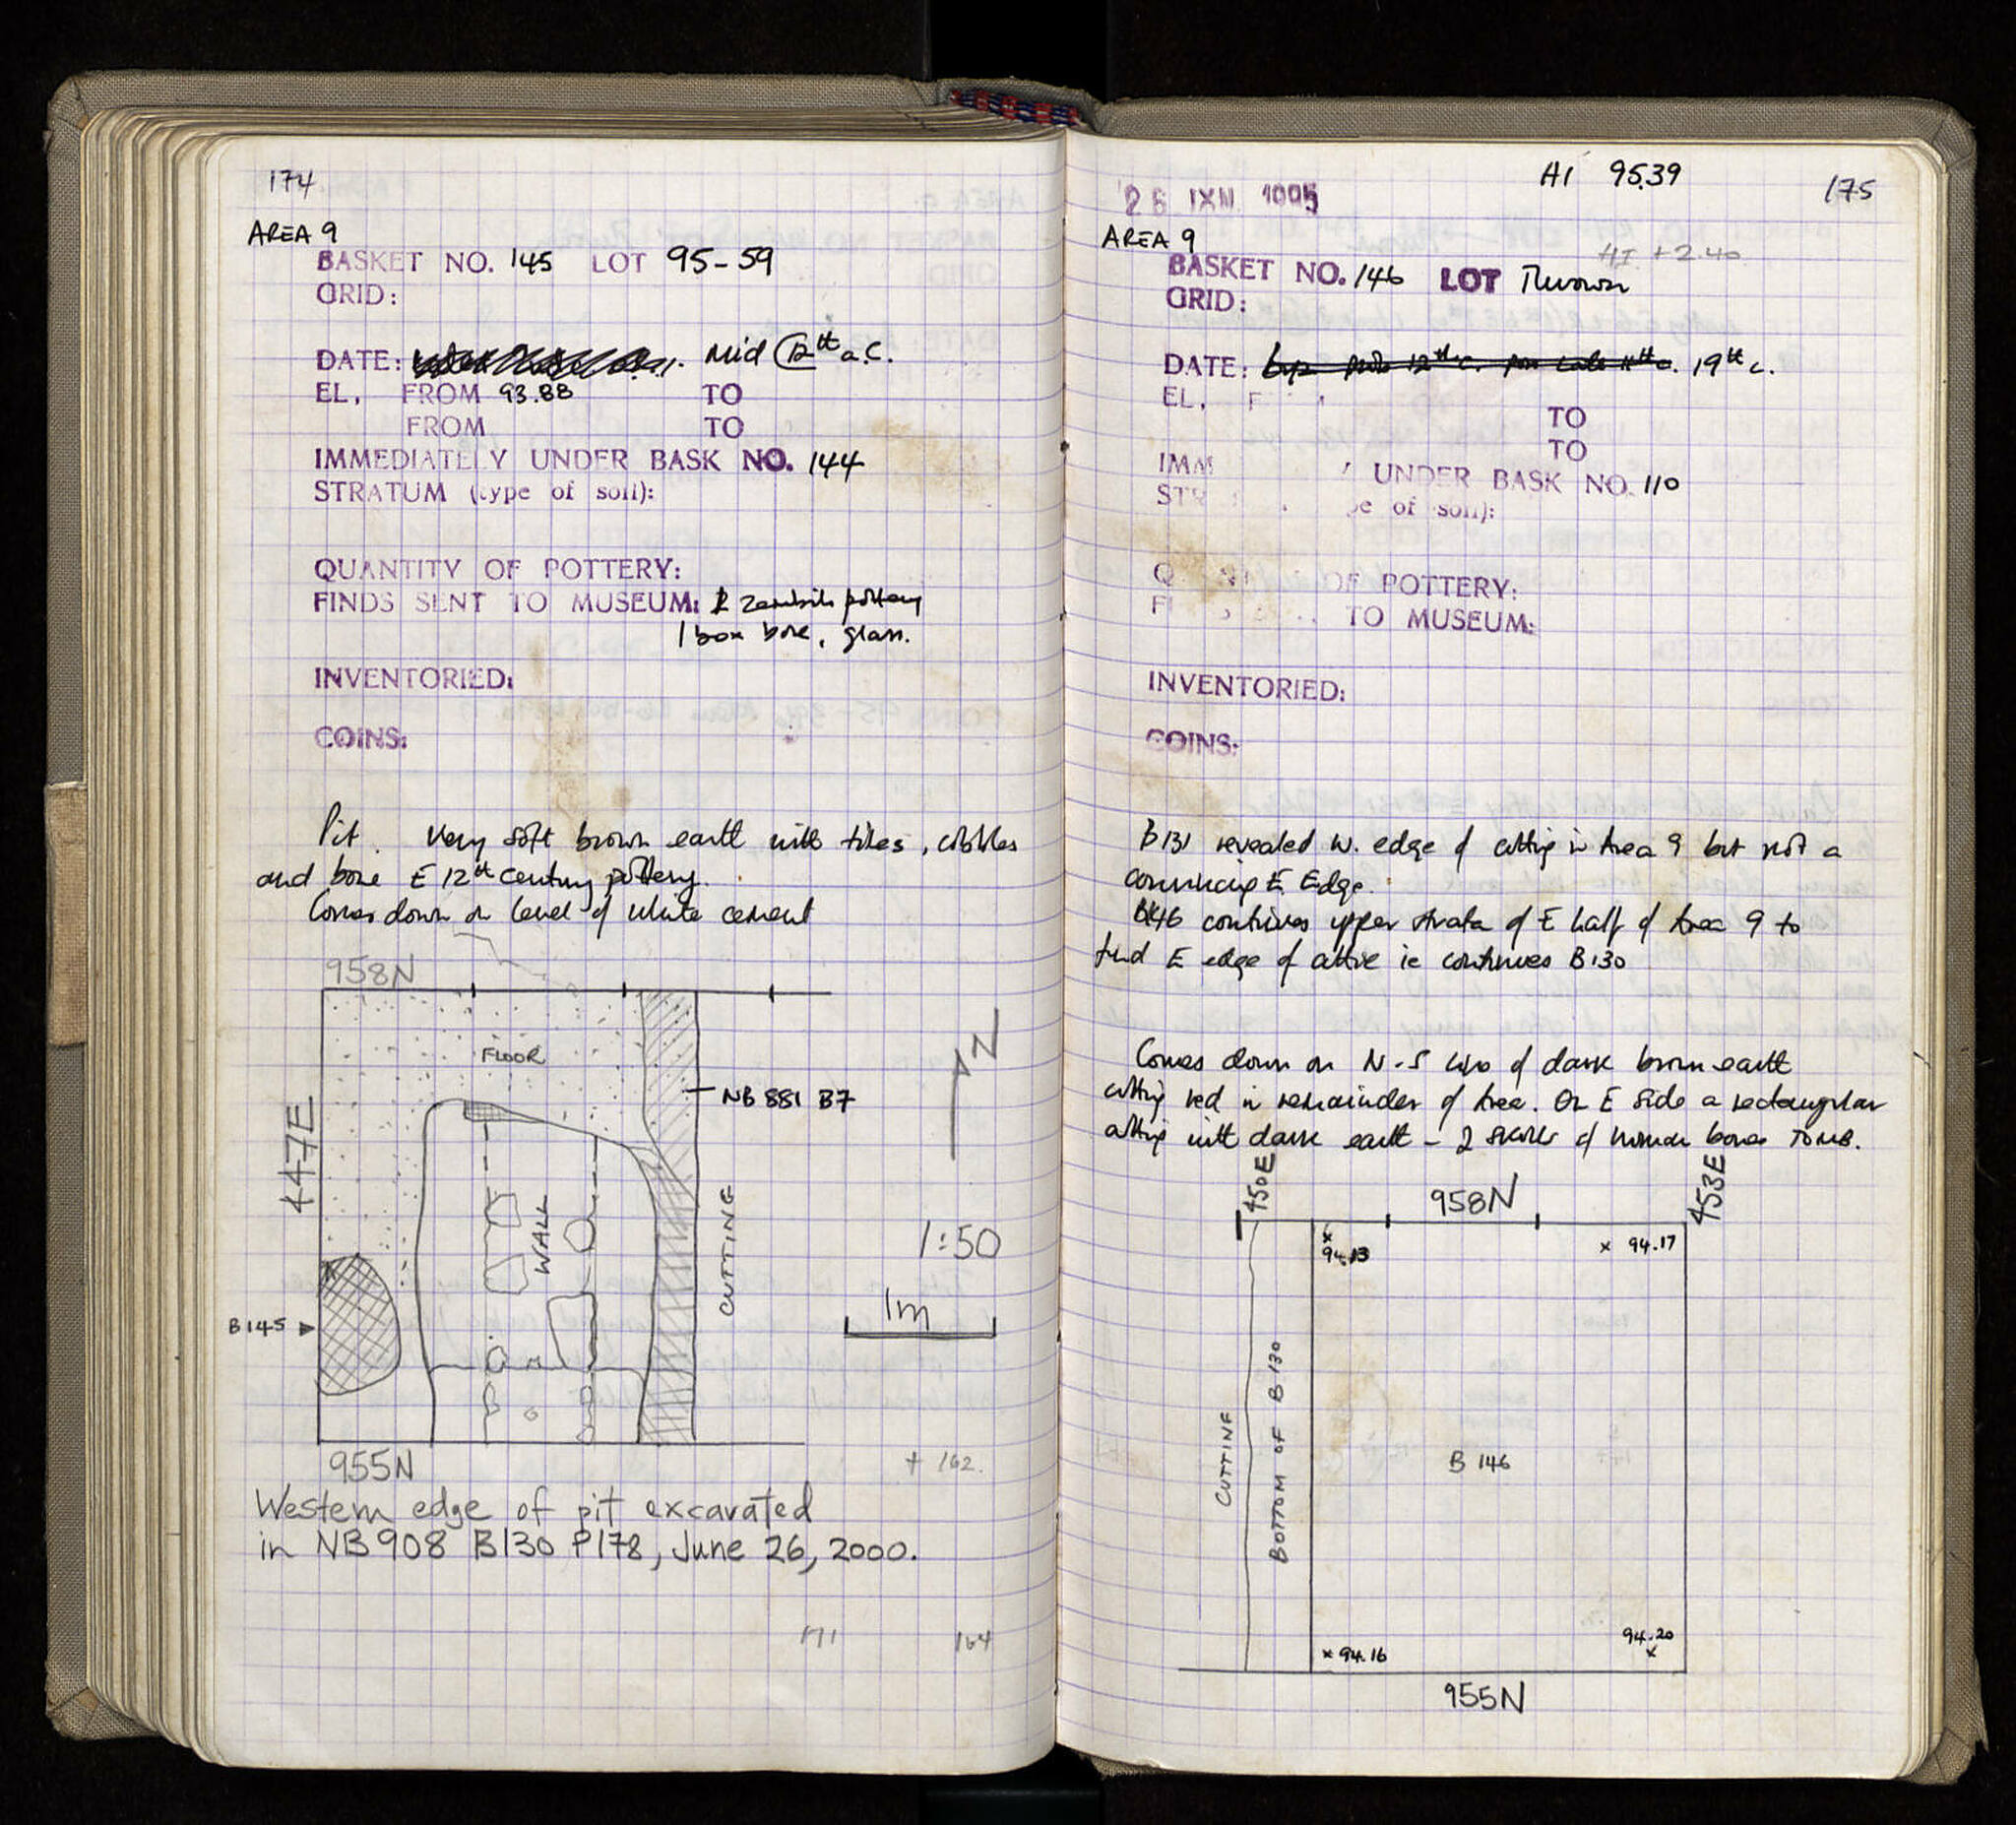 174
AREA 9
BASKET NO. 145 LOT 95-59
GRID:
DATE: Mid 12th a.C.
EL. FROM 93.88 TO
FROM TO
IMMEDIATELY UNDER BASK NO. 144
STRATUM (type of soil):
QUANTITY OF POTTERY:
FINDS SENT TO MUSEUM: zembili pottery
1 box bone, glass.
INVENTORIED:
COINS:
Pit. Very soft brown earth with tiles, cobbles
and bone E 12th century pottery.
Comes down on level of white cement
958N
FLOOR
NB 881 B7
N
447E
WALL
CUTTING
1:50
1m
B145
955N
+ 162.
Western edge of pit excavated
in NB908 B130 P178, June 26, 2000.
171 164
HI 95.39
175
AREA 9
HI +2.40
BASKET NO. 146 LOT Thrown
GRID:
DATE: 19th c.
EL. F
TO
TO
IMM UNDER BASK NO. 110
ST e of soil):
Q OF POTTERY:
F TO MUSEUM:
INVENTORIED:
COINS:
B131 revealed W. edge of cutting in Area 9 but not a
convincing E. Edge.
B146 continues upper strata of E half of Area 9 to
find E edge of cutting ie continues B130
Comes down on N-S line of dark brown earth
cutting red in remainder of Area. On E side a rectangular
cutting with dark earth - 2 skulls of human bones TOMB.
450E
958N
453E
94.13
94.17
CUTTING
BOTTOM OF B130
B 146
94.20
94.16
955N